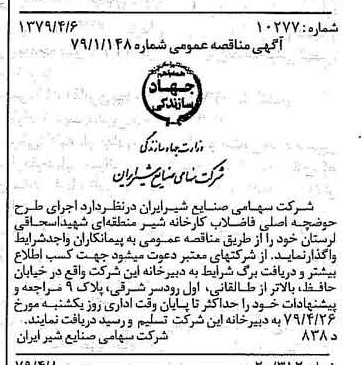 شماره: ۱۰۲۷۷
۱۳۷۹/۴/۶
آگهی مناقصه عمومی شماره ۷۹/۱/۱۴۸
همه با هم
جهاد
سازندگی
وزارت جهاد سازندگی
شرکت سهامی صنایع شیر ایران
شرکت سهامی صنایع شیرایران درنظردارد اجرای طرح
حوضچه اصلی فاضلاب کارخانه شیر منطقه‌ای شهیداسحاقی
لرستان خود را از طریق مناقصه عمومی به پیمانکاران واجدشرایط
واگذارنماید. از شرکتهای معتبر دعوت میشود جهت کسب اطلاع
بیشتر و دریافت برگ شرایط به دبیرخانه این شرکت واقع در خیابان
حافظ، بالاتر از طالقانی، اول رودسر شرقی، پلاک ۹ مراجعه و
پیشنهادات خود را حداکثر تا پایان وقت اداری روز یکشنبه مورخ
۷۹/۴/۲۶ به دبیرخانه این شرکت تسلیم و رسید دریافت نمایند.
د ۸۳۸
شرکت سهامی صنایع شیر ایران